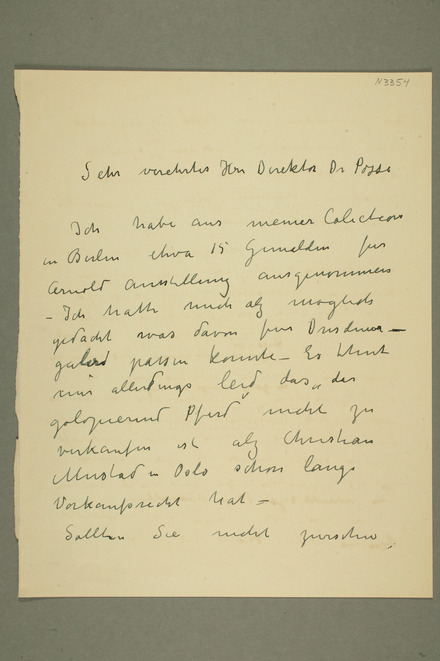 N3354
Sehr verehrter Herr Direktor Dr Posse
Ich habe aus meiner Colection
in Berlin etwa 15 Gemelden fur
Arnold Ausstellung ausgenommen
– Ich hatte mich alz moglich
gedacht was davon fur Dresdener–
galerd passen konnte – Es thut
mir allerdings leid das „das
galopierend Pferd" nicht zu
verkaufen ist alz Christian
Mustad in Oslo schon lange
Vorkaufsrecht hat –
Sollten Sie nicht